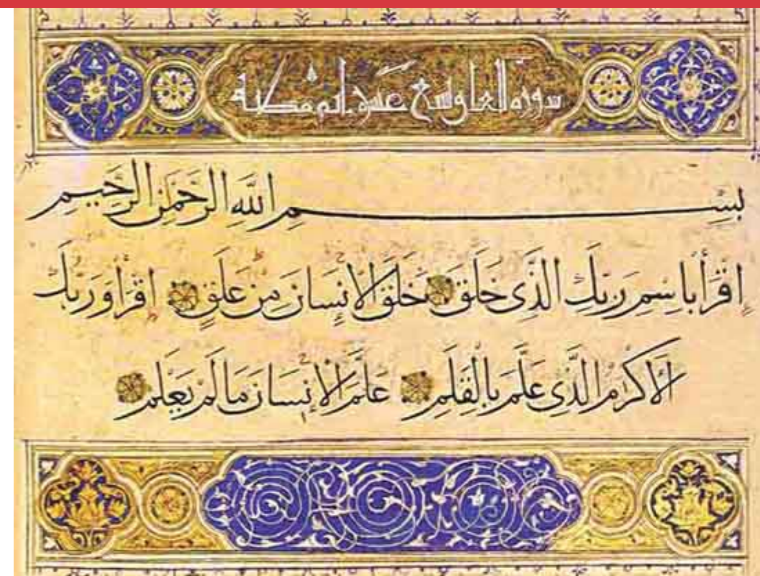 سورة العلق تسع عشرة اية مكية
بِسْمِ اللَّهِ الرَّحْمَنِ الرَّحِيمِ
اِقْرَأْ بِاسْمِ رَبِّكَ الَّذِى خَلَقَ خَلَقَ الْاِنْسَانَ مِنْ عَلَقٍ اِقْرَأْ وَرَبُّكَ
الْاَكْرَمُ الَّذِى عَلَّمَ بِالْقَلَمِ عَلَّمَ الْاِنْسَانَ مَا لَمْ يَعْلَمْ